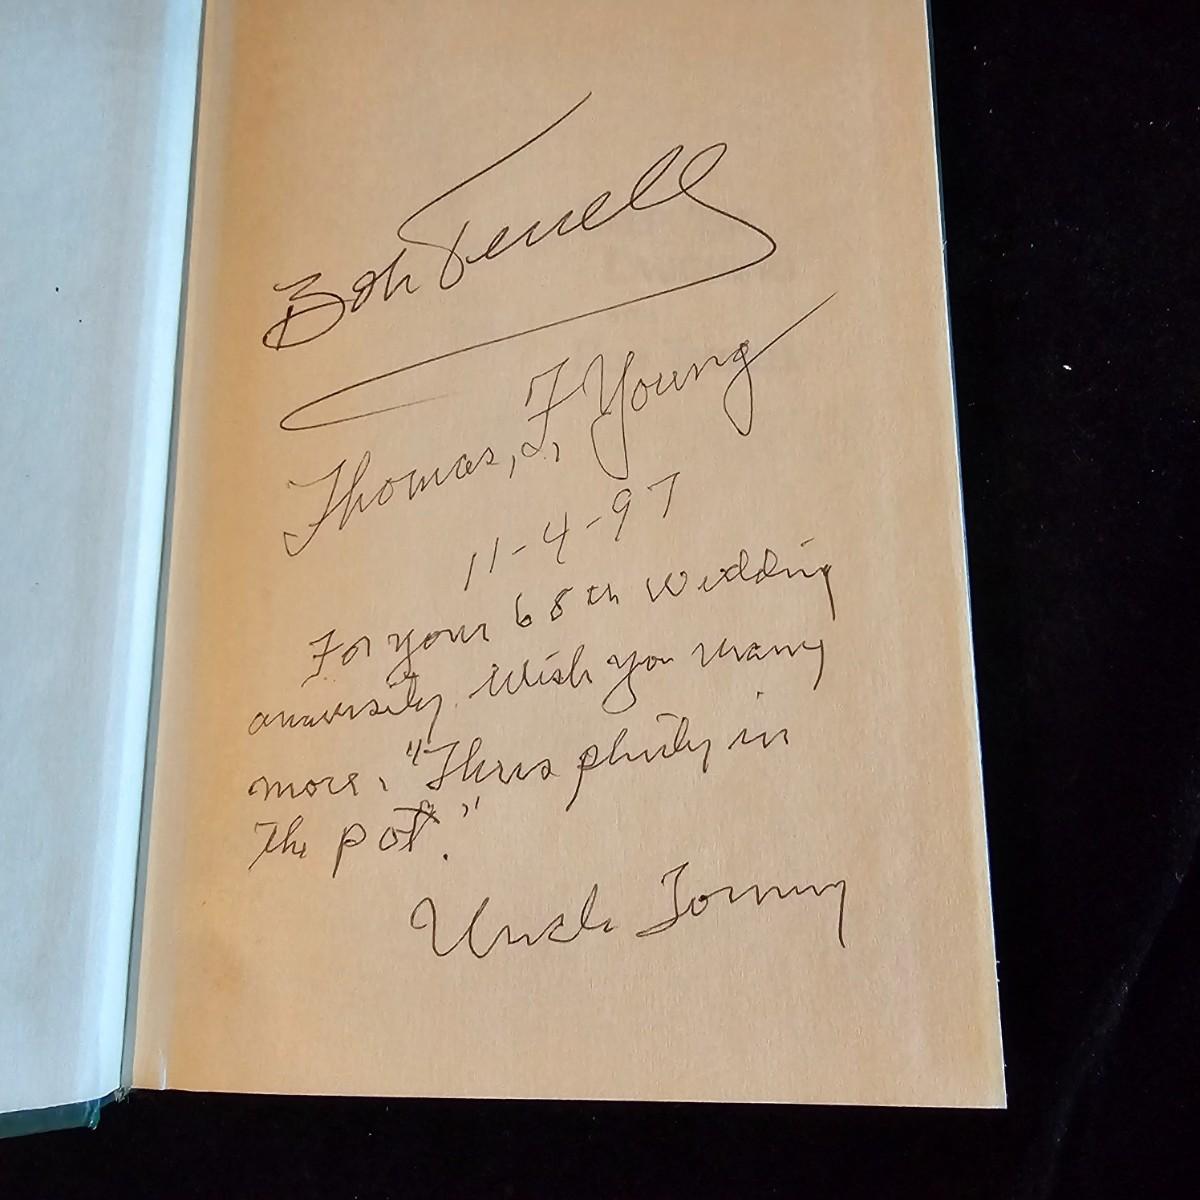 Bob Terrell
Thomas, F, Young
11-4-97
For your 68th Wedding
aniversity. Wish you many
more, "Thers plinty in
The pot."
Uncle Tommy